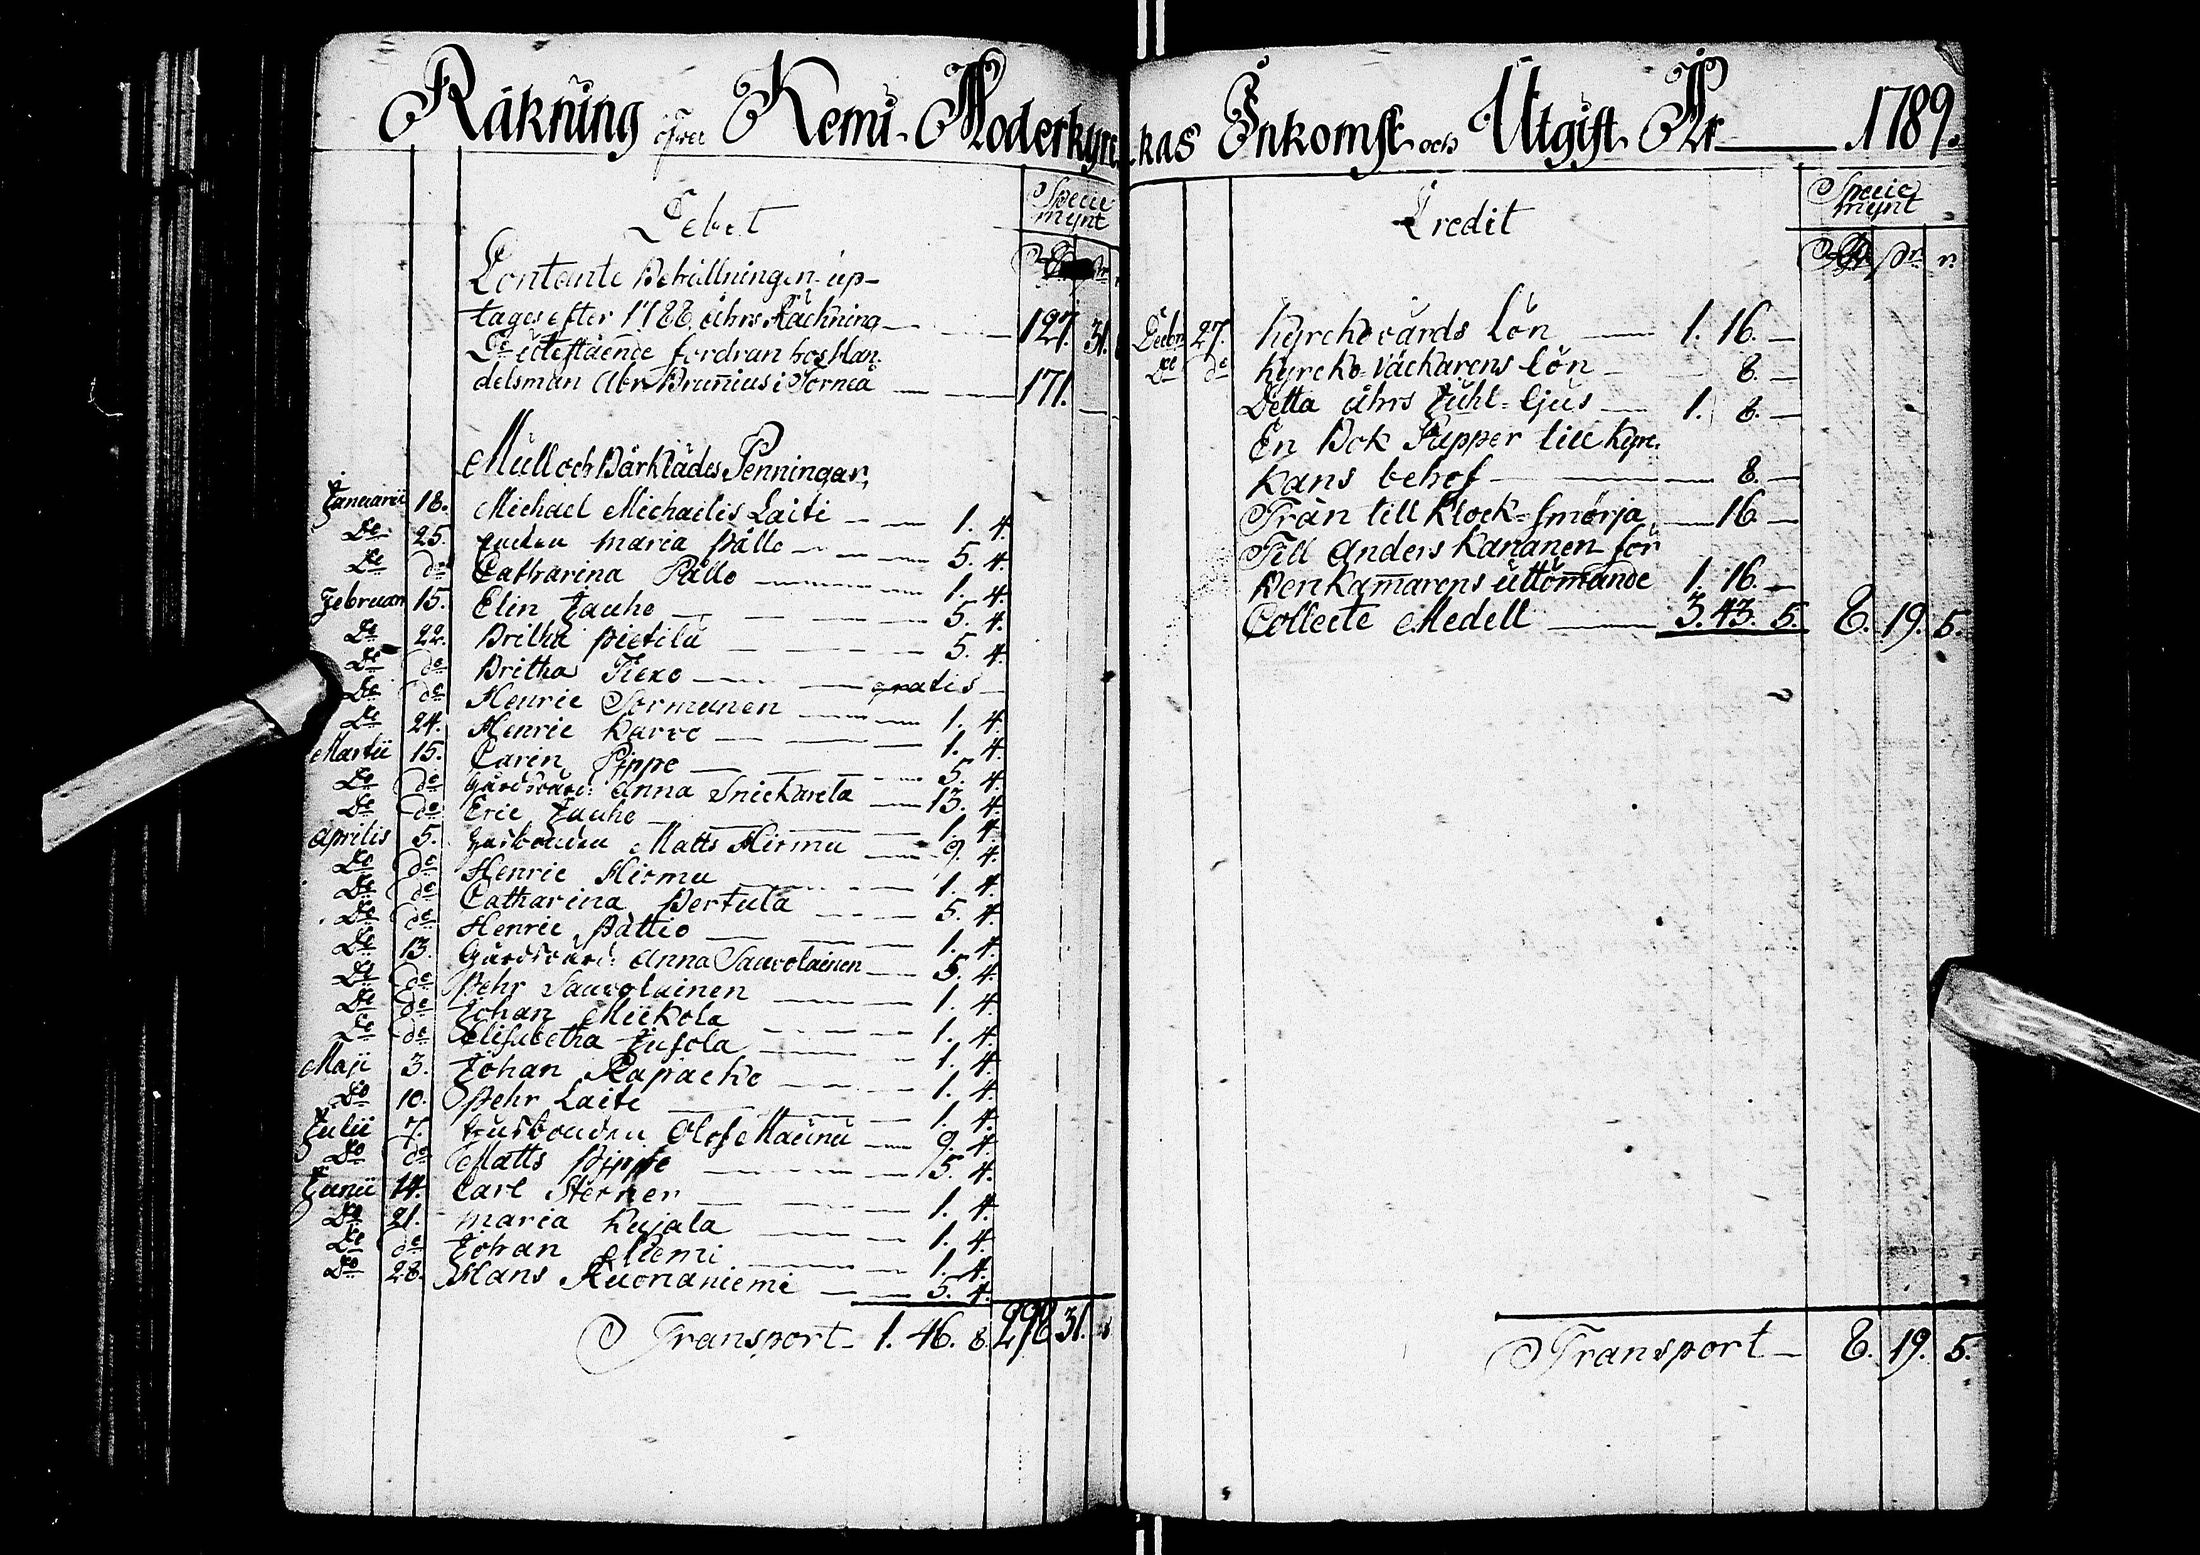 Räkning öfver Kemi Moderkyrc-
Debet
Specie mynt
Contante Behållningen up-
tages efter 1788 åhrs Räckning — 127. 31.
Do utestående fordran hos Han-
delsman Abr Brunius i Torneå — 171. —
Mull och Bårklädes Penningar,
Januarii 18. Michael Michaelis Laiti — 1. 4.
Do 25. Enckan Maria Pållo — 5. 4.
Do do Catharina Pållo — 1. 4.
Februari 15. Elin Jauho — 5. 4.
Do 22. Britha Pietilä — 5. 4.
Do do Britha Tiexo — gratis
Do do Henric Sormunen — 1. 4.
Do 24. Henric Karvo — 1. 4.
Martii 15. Carin Pippo — 5. 4.
Do do Gårdsvärd: Anna Snickarela — 13. 4.
Do do Eric Jauho — 1. 4.
Aprilis 5. Husbonden Matts Hirmu — 9. 4.
Do do Henric Hirmu — 1. 4.
Do do Catharina Pertula — 5. 4.
Do do Henric Påttio — 1. 4.
Do 13. Gårdsvärd: Anna Sauvolainen — 5. 4.
Do do Pehr Sauvolainen — 1. 4.
Do do Johan Miickola — 1. 4.
Do do Elisabetha Jusola — 1. 4.
Maji 3. Johan Rajpacko — 1. 4.
Do 10. Pehr Laiti — 1. 4.
Julii 7. Husbonden Olof Maunu — 9. 4.
Do do Matts Pippo — 5. 4.
Junii 14. Carl Sterner — 1. 4.
Do 21. Maria Kujala — 1. 4.
Do do Johan Niemi — 1. 4.
Do 28. Hans Kuonaniemi — 5. 4.
Transport — 1. 46. 8. 298 31.
kas Inkomst och Utgift År — 1789.
Credit
Specie mynt
Decbr 27. Kyrckovårds Lön — 1. 16. —
Do do Kyrcko-Väckarens Lön — 8. —
Detta åhrs Juhl-Ljus — 1. 8. —
En Bok Papper till Kyrc-
kans behof — 8. —
Tran till Klock-smörja — 16 —
Till Anders Kananen för
Benkamarens uttömande 1. 16. —
Collecte Medell — 3. 43. 5. 8. 19. 5.
Transport — 8. 19. 5.